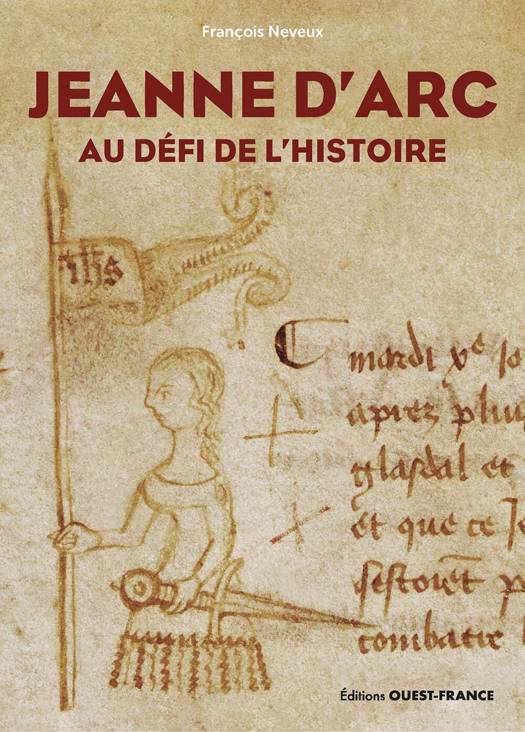 François Neveux
JEANNE D'ARC
AU DÉFI DE L'HISTOIRE
ihs
mardi xe jo
aprez plu
glasdal et
et que ce Je
sestoiēt p
combatre
Éditions OUEST-FRANCE